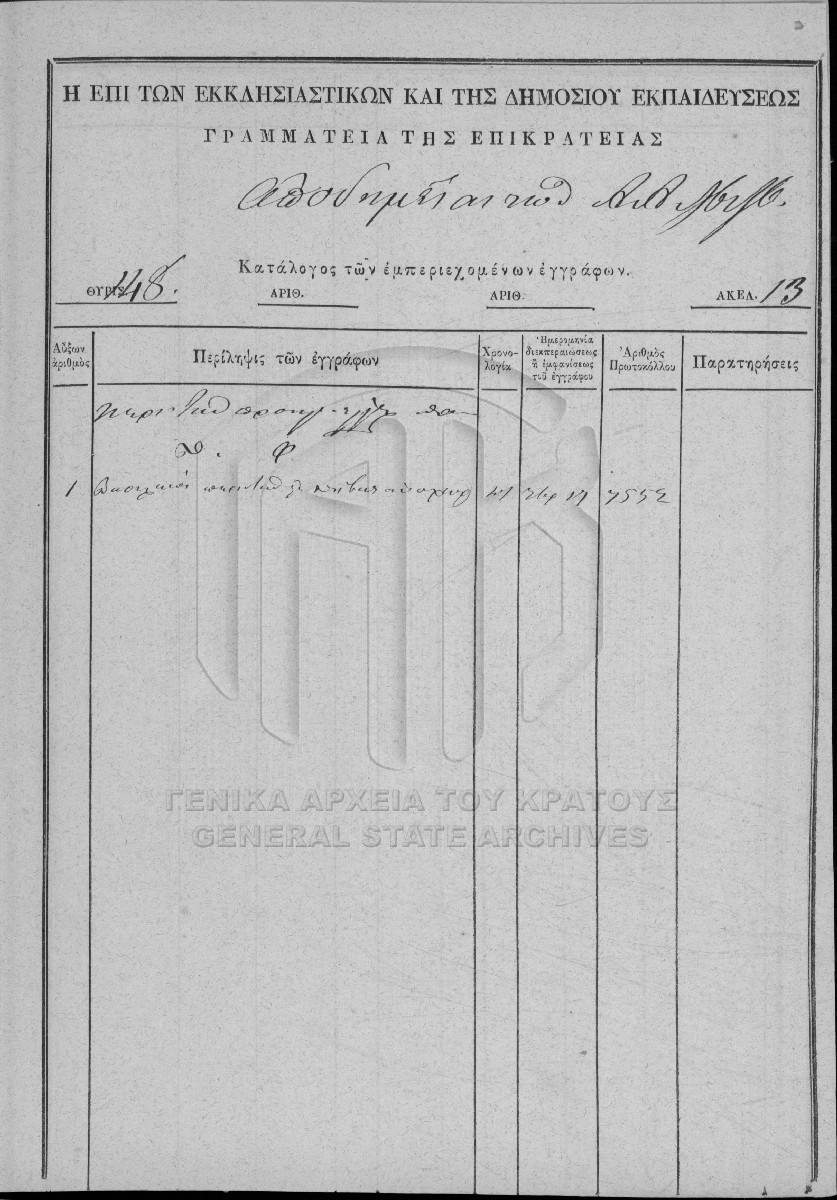 Η ΕΠΙ ΤΩΝ ΕΚΚΛΗΣΙΑΣΤΙΚΩΝ ΚΑΙ ΤΗΣ ΔΗΜΟΣΙΟΥ ΕΚΠΑΙΔΕΥΣΕΩΣ
ΓΡΑΜΜΑΤΕΙΑ ΤΗΣ ΕΠΙΚΡΑΤΕΙΑΣ
Αποδημίαι των Α.Α. Μ.Μ.
Κατάλογος τῶν ἐμπεριεχομένων ἐγγράφων.
ΘΥΡΙΣ 148. ΑΡΙΘ. ΑΡΙΘ. ΑΚΕΛ. 13
Αὔξων ἀριθμὸς
Περίληψις τῶν ἐγγράφων
Χρονολογία
Ἡμερομηνία διεκπεραιώσεως ἢ ἐμφανίσεως τοῦ ἐγγράφου
Ἀριθμὸς Πρωτοκόλλου
Παρατηρήσεις
1 41 17 7552
ΓΕΝΙΚΑ ΑΡΧΕΙΑ ΤΟΥ ΚΡΑΤΟΥΣ
GENERAL STATE ARCHIVES